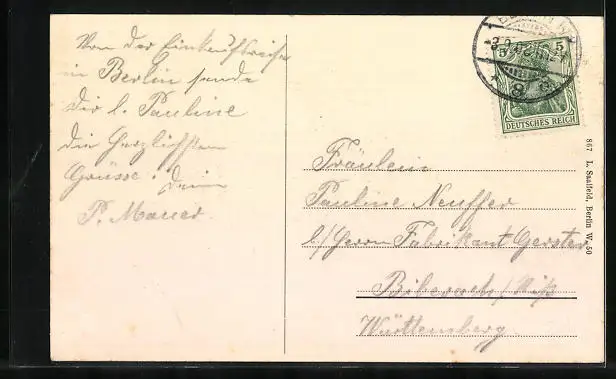 Von der Einkaufsreise
in Berlin sende
Dir l. Pauline
die herzlichsten
Grüsse. Deine
P. Mauer.
5 5
DEUTSCHES REICH
Fräulein
Pauline Neuffer
b/Herrn Fabrikant Gerster
Biberach/Riß
Württemberg.
867 L. Saalfeld, Berlin W. 50